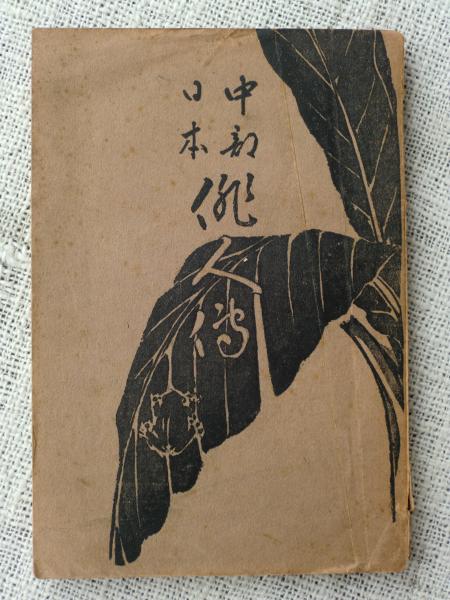 中部
日本
俳人傳